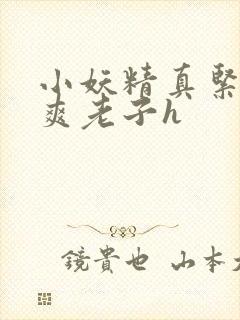 小妖精真緊
爽老子h
鏡貴也 山本